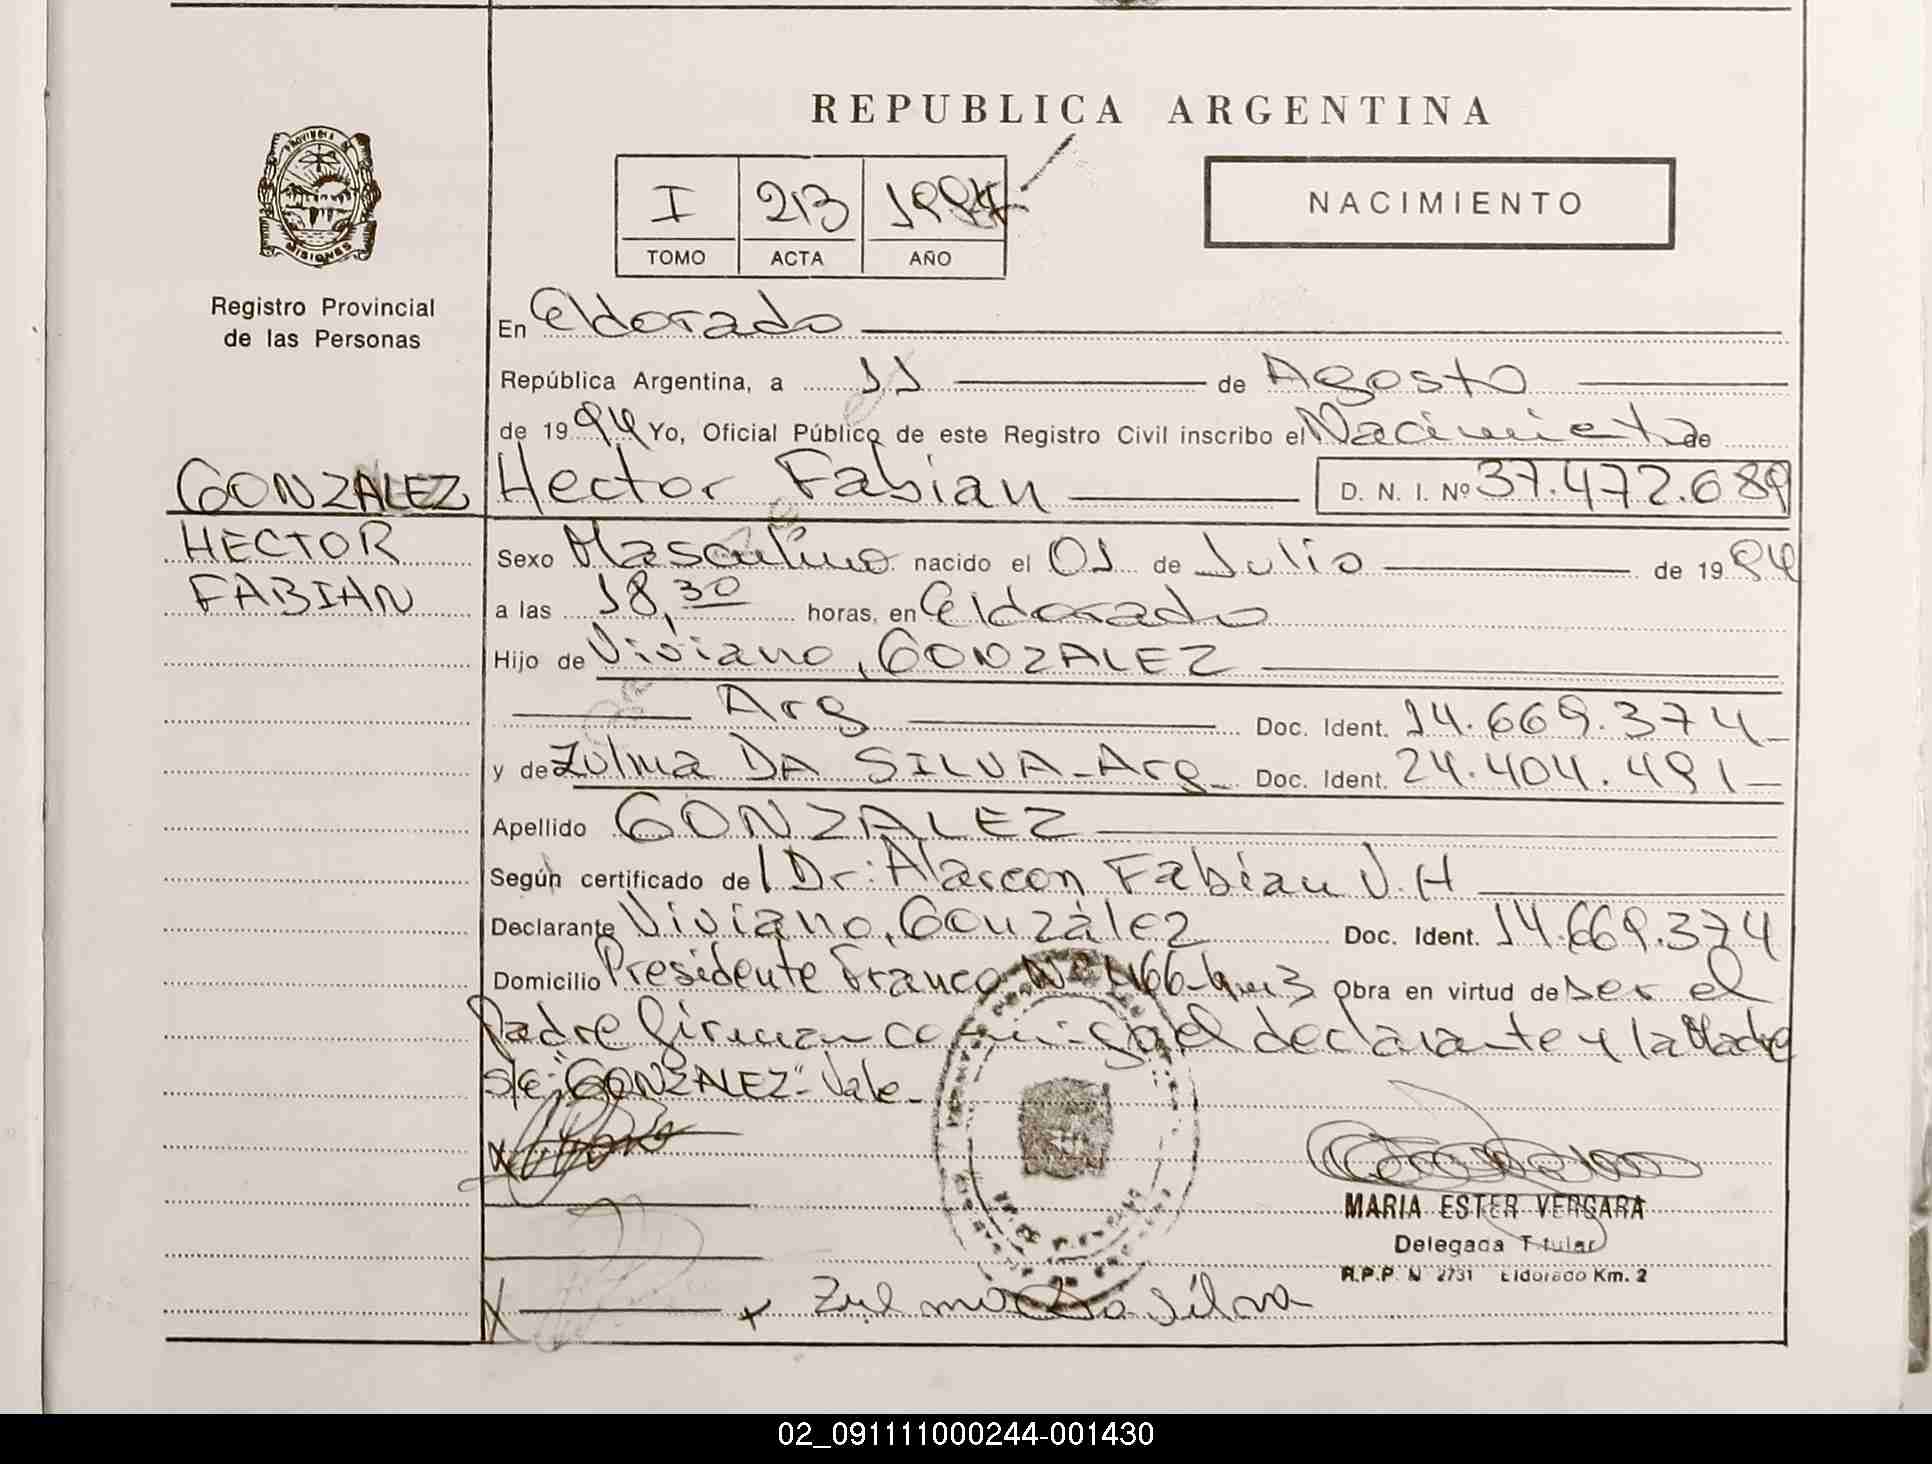 REPUBLICA ARGENTINA
PROVINCIA DE
MISIONES
Registro Provincial
de las Personas
I 213 1994
TOMO ACTA AÑO
NACIMIENTO
En Eldorado
República Argentina, a 11 de Agosto
de 1994 Yo, Oficial Público de este Registro Civil inscribo el Nacimiento de
GONZALEZ Hector Fabian D. N. I. Nº 37.472.689
HECTOR Sexo Masculino nacido el 01 de Julio de 1994
FABIAN a las 18,30 horas, en Eldorado
Hijo de Viviano, GONZALEZ
Arg Doc. Ident. 14.669.374
y de Zulma DA SILVA - Arg Doc. Ident. 24.404.491
Apellido GONZALEZ
Según certificado del Dr: Alarcon Fabian V.H
Declarante Viviano, González Doc. Ident. 14.669.374
Domicilio Presidente Franco Nº 1466 - km 3 Obra en virtud de ser el
Padre firman conmigo el declarante y la Madre
s/e: "GONZALEZ" - Vale
MARIA ESTER VERGARA
Delegada Titular
R.P.P. N 2731 Eldorado Km. 2
X x Zulma Da Silva
02_091111000244-001430